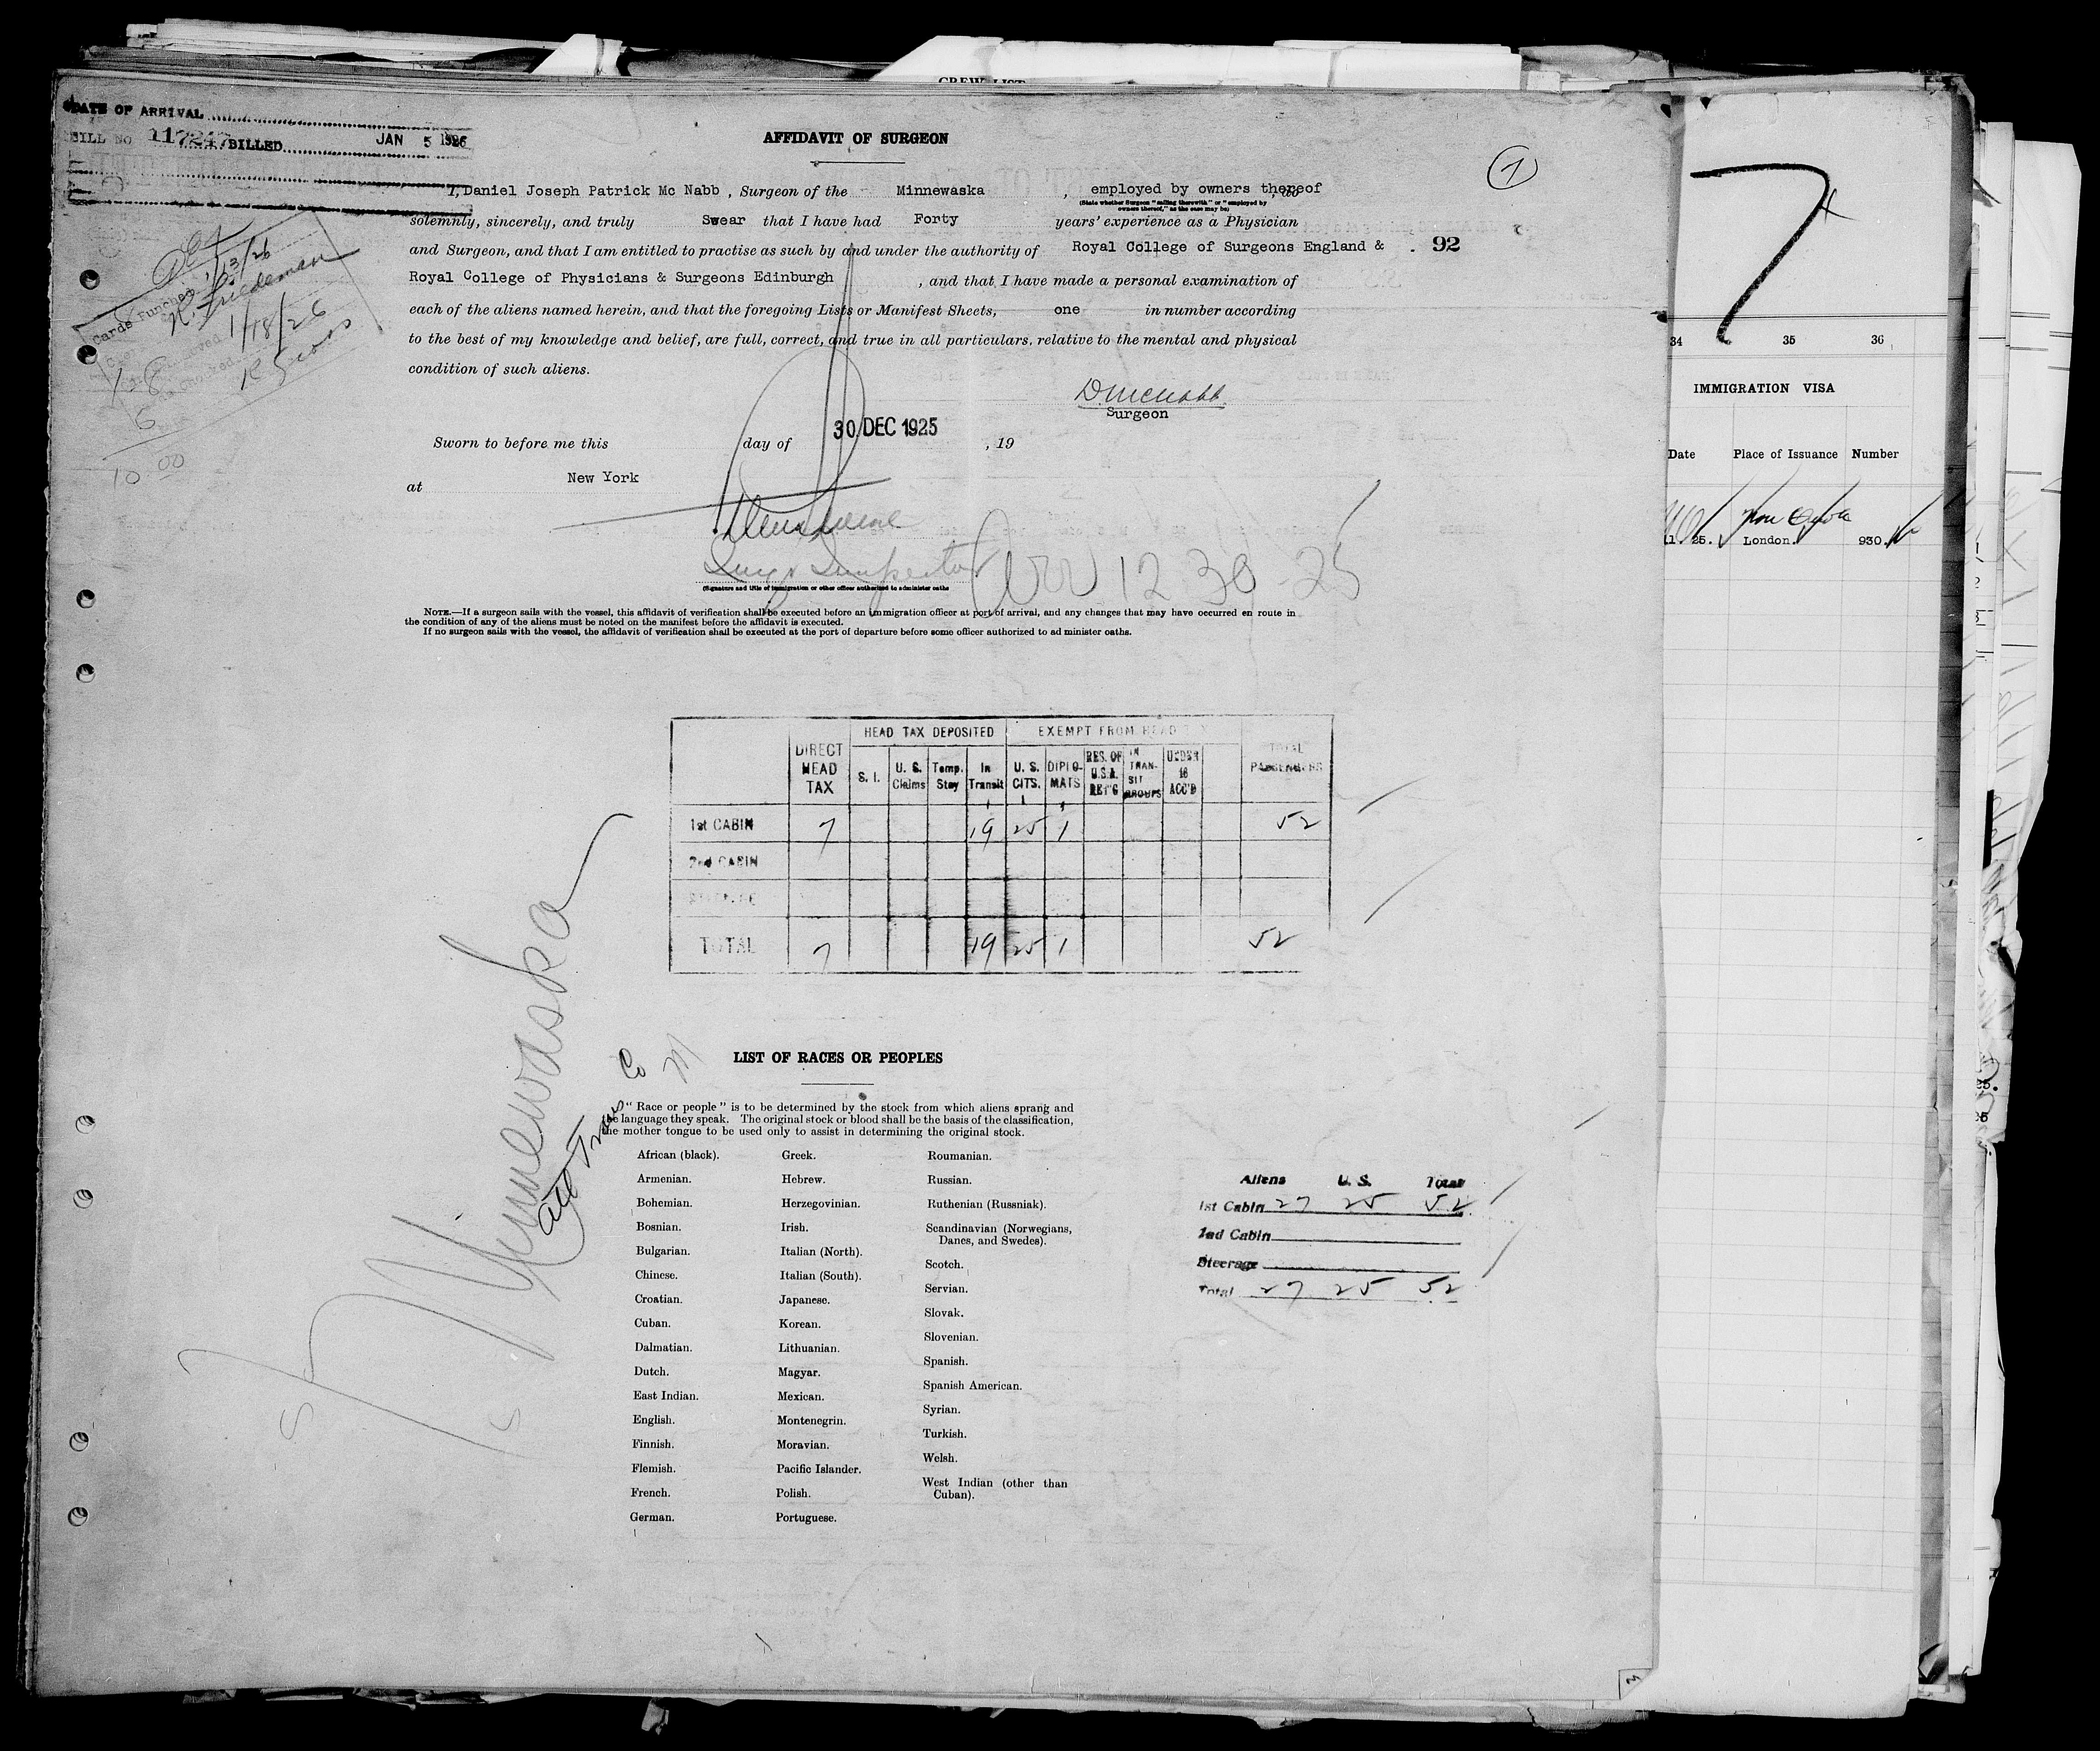 CREW LIST
DATE OF ARRIVAL
BILL NO 117247 BILLED JAN 5 1926
AFFIDAVIT OF SURGEON
1
7
I, Daniel Joseph Patrick Mc Nabb , Surgeon of the Minnewaska , employed by owners thereof , do
(State whether Surgeon "sailing therewith" or "employed by
owners thereof," as the case may be)
solemnly, sincerely, and truly Swear that I have had Forty years' experience as a Physician
and Surgeon, and that I am entitled to practise as such by and under the authority of Royal College of Surgeons England & . 92
Royal College of Physicians & Surgeons Edinburgh , and that I have made a personal examination of
each of the aliens named herein, and that the foregoing Lists or Manifest Sheets, one in number according
to the best of my knowledge and belief, are full, correct, and true in all particulars, relative to the mental and physical
condition of such aliens.
Cards Punched 1/13/26
K. Friedeman
1/18/26
6
10 00
D McNabb
Surgeon
Sworn to before me this day of 30 DEC 1925 , 19
at New York
Inspector
12 30 25
(Signature and title of immigration or other officer authorized to administer oaths
NOTE.—If a surgeon sails with the vessel, this affidavit of verification shall be executed before an immigration officer at port of arrival, and any changes that may have occurred en route in
the condition of any of the aliens must be noted on the manifest before the affidavit is executed.
If no surgeon sails with the vessel, the affidavit of verification shall be executed at the port of departure before some officer authorized to ad minister oaths.
34 35 36
IMMIGRATION VISA
Date Place of Issuance Number
25. London. 930.
DIRECT HEAD TAX HEAD TAX DEPOSITED EXEMPT FROM HEAD TOTAL PASSENGERS
S. I. U. S. Claims Temp. Stay In Transit U. S. CITS. DIPLO-MATS RES. OF U.S.A. RET'G IN TRAN-SIT GROUPS UNDER 16 ACC'D
1st CABIN 7 19 25 1 52
2nd CABIN
TOTAL 7 19 25 1 52
Minnewaska
Co M
Atto Trans
LIST OF RACES OR PEOPLES
"Race or people" is to be determined by the stock from which aliens sprang and
the language they speak. The original stock or blood shall be the basis of the classification,
the mother tongue to be used only to assist in determining the original stock.
African (black).
Armenian.
Bohemian.
Bosnian.
Bulgarian.
Chinese.
Croatian.
Cuban.
Dalmatian.
Dutch.
East Indian.
English.
Finnish.
Flemish.
French.
German.
Greek.
Hebrew.
Herzegovinian.
Irish.
Italian (North).
Italian (South).
Japanese.
Korean.
Lithuanian.
Magyar.
Mexican.
Montenegrin.
Moravian.
Pacific Islander.
Polish.
Portuguese.
Roumanian.
Russian.
Ruthenian (Russniak).
Scandinavian (Norwegians,
Danes, and Swedes).
Scotch.
Servian.
Slovak.
Slovenian.
Spanish.
Spanish American.
Syrian.
Turkish.
Welsh.
West Indian (other than
Cuban).
Aliens U. S. Total
1st Cabin 27 25 52
2nd Cabin
Steerage
Total 27 25 52